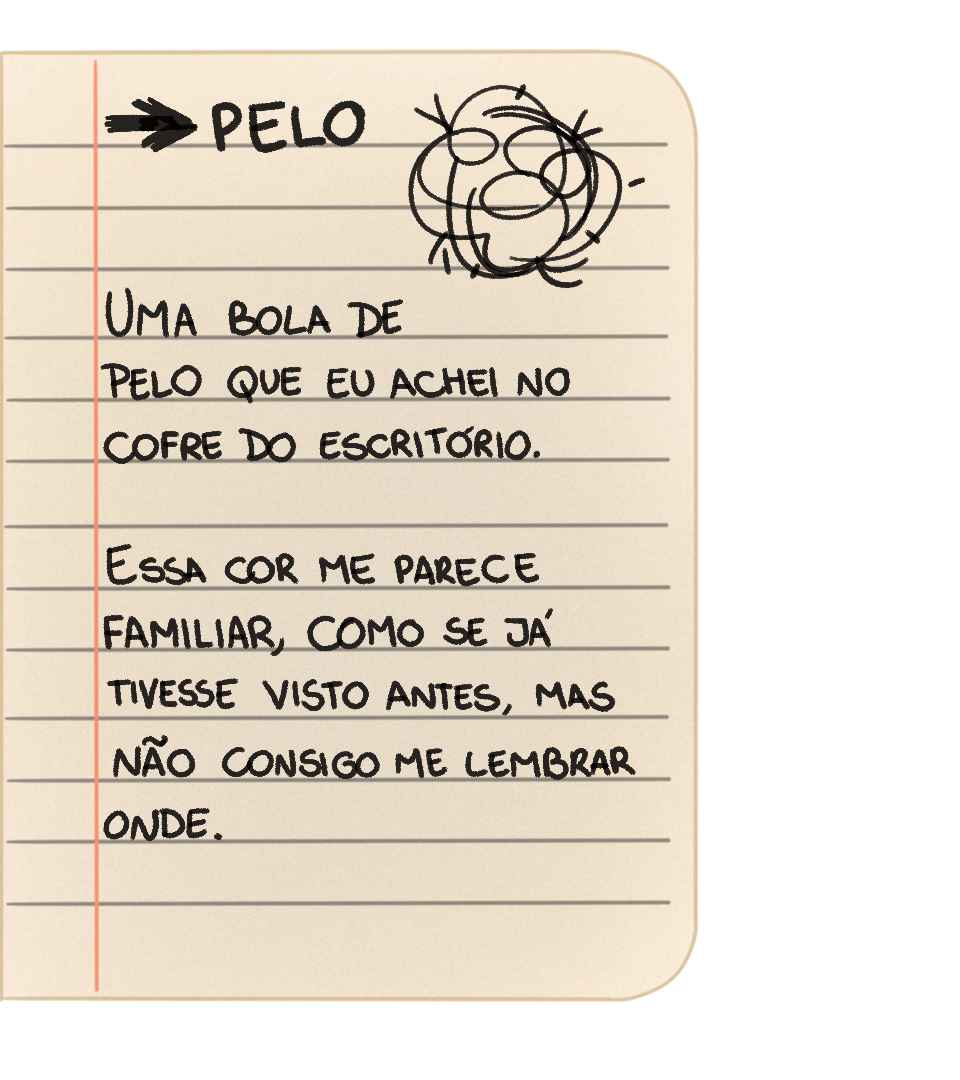 PELO
UMA BOLA DE
PELO QUE EU ACHEI NO
COFRE DO ESCRITÓRIO.
ESSA COR ME PARECE
FAMILIAR, COMO SE JÁ
TIVESSE VISTO ANTES, MAS
NÃO CONSIGO ME LEMBRAR
ONDE.